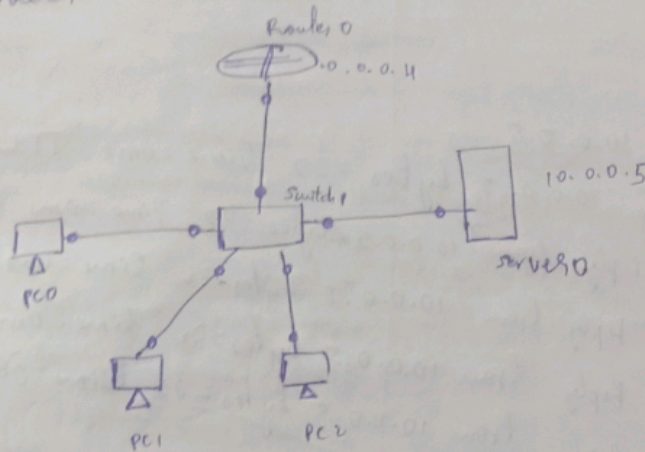 Router 0
.0.0.0.4
Switch
10.0.0.5
Server0
PC0
PC1
PC2